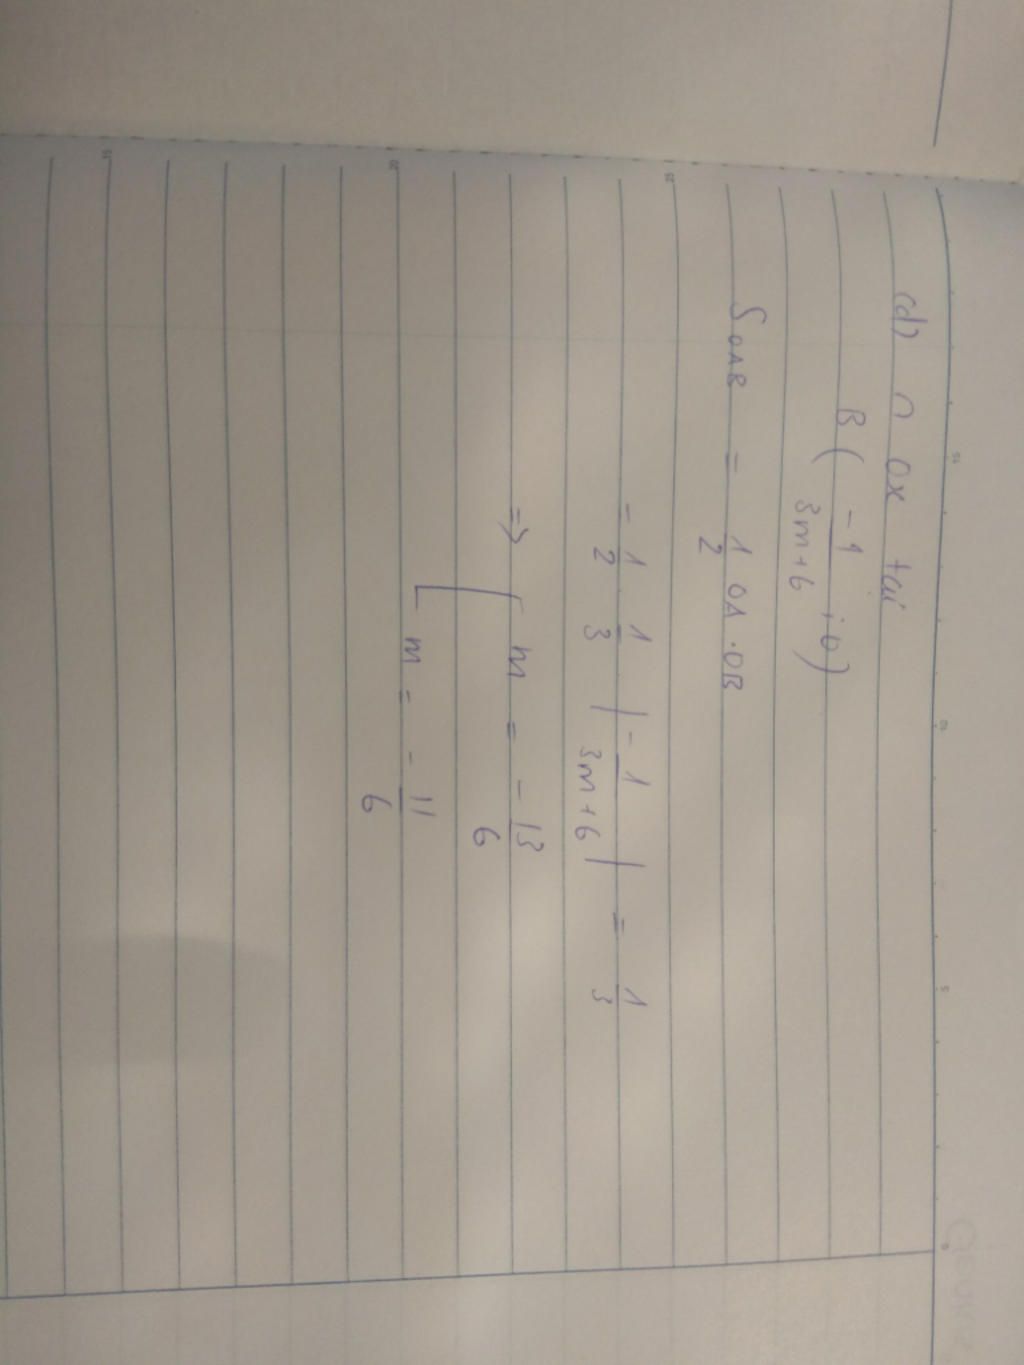 (d) ∩ Ox tại
B ( -1/3m+6 ; 0 )
S OAB = 1/2 OA . OB
= 1/2 1/3 | -1/3m+6 | = 1/3
=> [ m = -13/6
m = -11/6